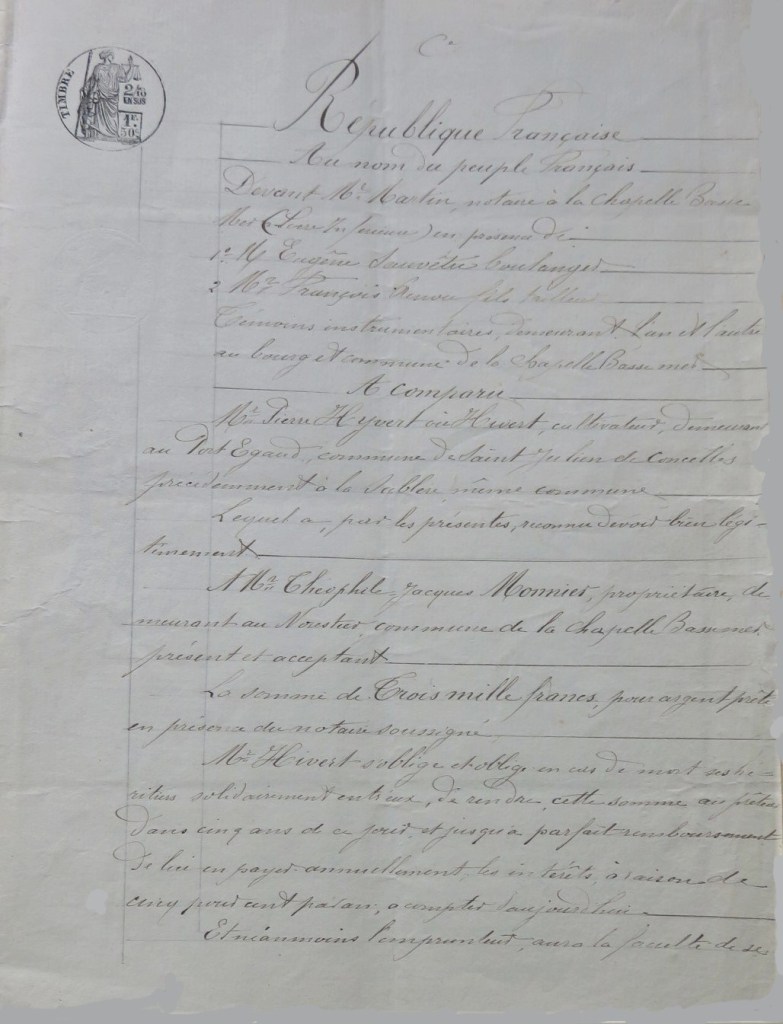 TIMBRE
2/10
EN SUS
1F.
50c.
République Française
Au nom du peuple Français
Devant Me Martin, notaire à la Chapelle Basse
Mer (Loire Inférieure) en présence de :
1° M Eugène Sauvêtre boulanger
2 Mr François Renou fils tailleur
Témoins instrumentaires, demeurant l'un et l'autre
au bourg et commune de la Chapelle Basse mer
A comparu
Mr Pierre Hyvert ou Hivert, cultivateur, demeurant
au Port Egaud, commune de Saint Julien de Concelles
précédemment à la Sablere, même commune
Lequel a, par les présentes, reconnu devoir bien légi-
timement
A Mr Théophile Jacques Monnier, propriétaire, de
meurant au Norestier, commune de la Chapelle Basse mer,
présent et acceptant
La somme de Trois mille francs, pour argent prêté
en présence du notaire soussigné
Mr Hivert s'oblige et oblige en cas de mort ses hé-
ritiers solidairement entr'eux, de rendre cette somme au prêteur
dans cinq ans de ce jour, et jusqu'à parfait remboursement
de lui en payer annuellement, les intérêts, à raison de
cinq pour cent par an, à compter d'aujourd'hui
Et néanmoins l'emprunteur, aura la faculté de se